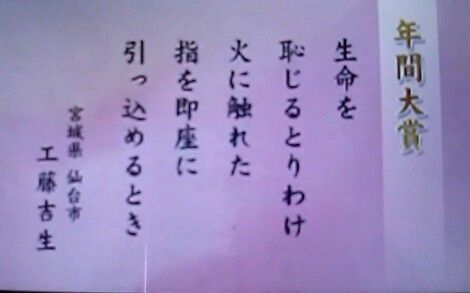 年間大賞
生命を
恥じるとりわけ
火に触れた
指を即座に
引っ込めるとき
宮城県 仙台市
工藤吉生